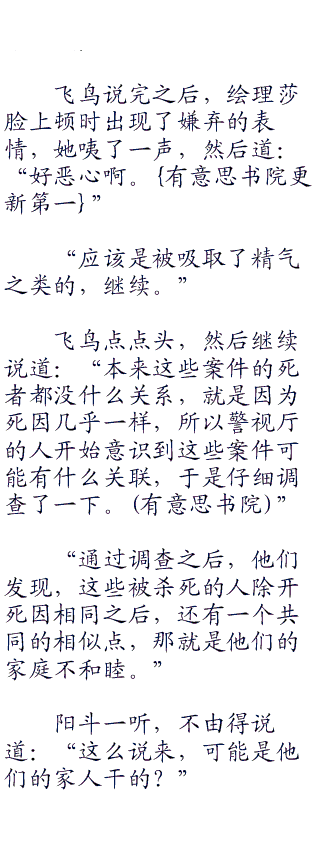 飞鸟说完之后，绘理莎
脸上顿时出现了嫌弃的表
情，她咦了一声，然后道：
“好恶心啊。{有意思书院更
新第一}”
“应该是被吸取了精气
之类的，继续。”
飞鸟点点头，然后继续
说道：“本来这些案件的死
者都没什么关系，就是因为
死因几乎一样，所以警视厅
的人开始意识到这些案件可
能有什么关联，于是仔细调
查了一下。(有意思书院)”
“通过调查之后，他们
发现，这些被杀死的人除开
死因相同之后，还有一个共
同的相似点，那就是他们的
家庭不和睦。”
阳斗一听，不由得说
道：“这么说来，可能是他
们的家人干的？”